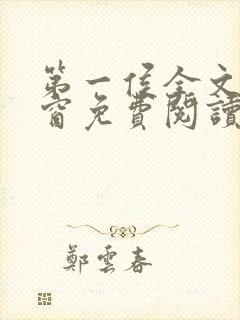 第一侯全文
窗免費閱讀
鄭雲春